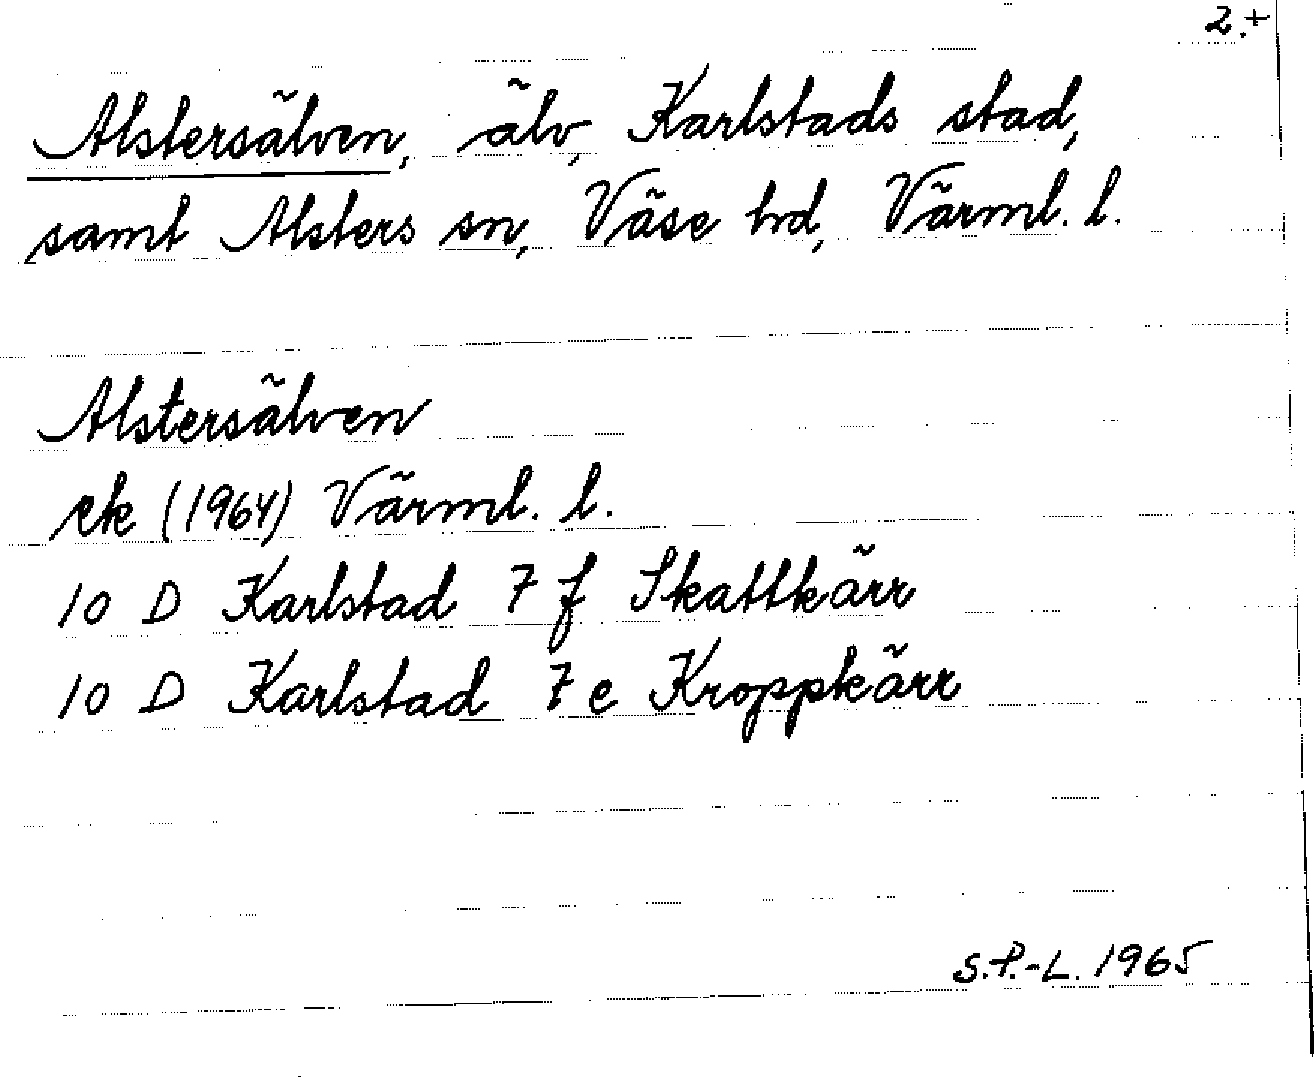 2.+
Alstersälven, älv, Karlstads stad,
samt Alsters sn, Väse hd, Värml. l.
Alstersälven
ek (1964) Värml. l.
10 D Karlstad 7 f Skattkärr
10 D Karlstad 7 e Kroppkärr
S.P.-L. 1965